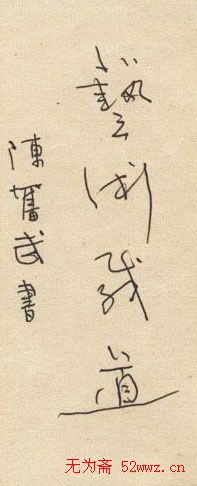 藝術道
陳奮武書
无为斋 52wwz.cn